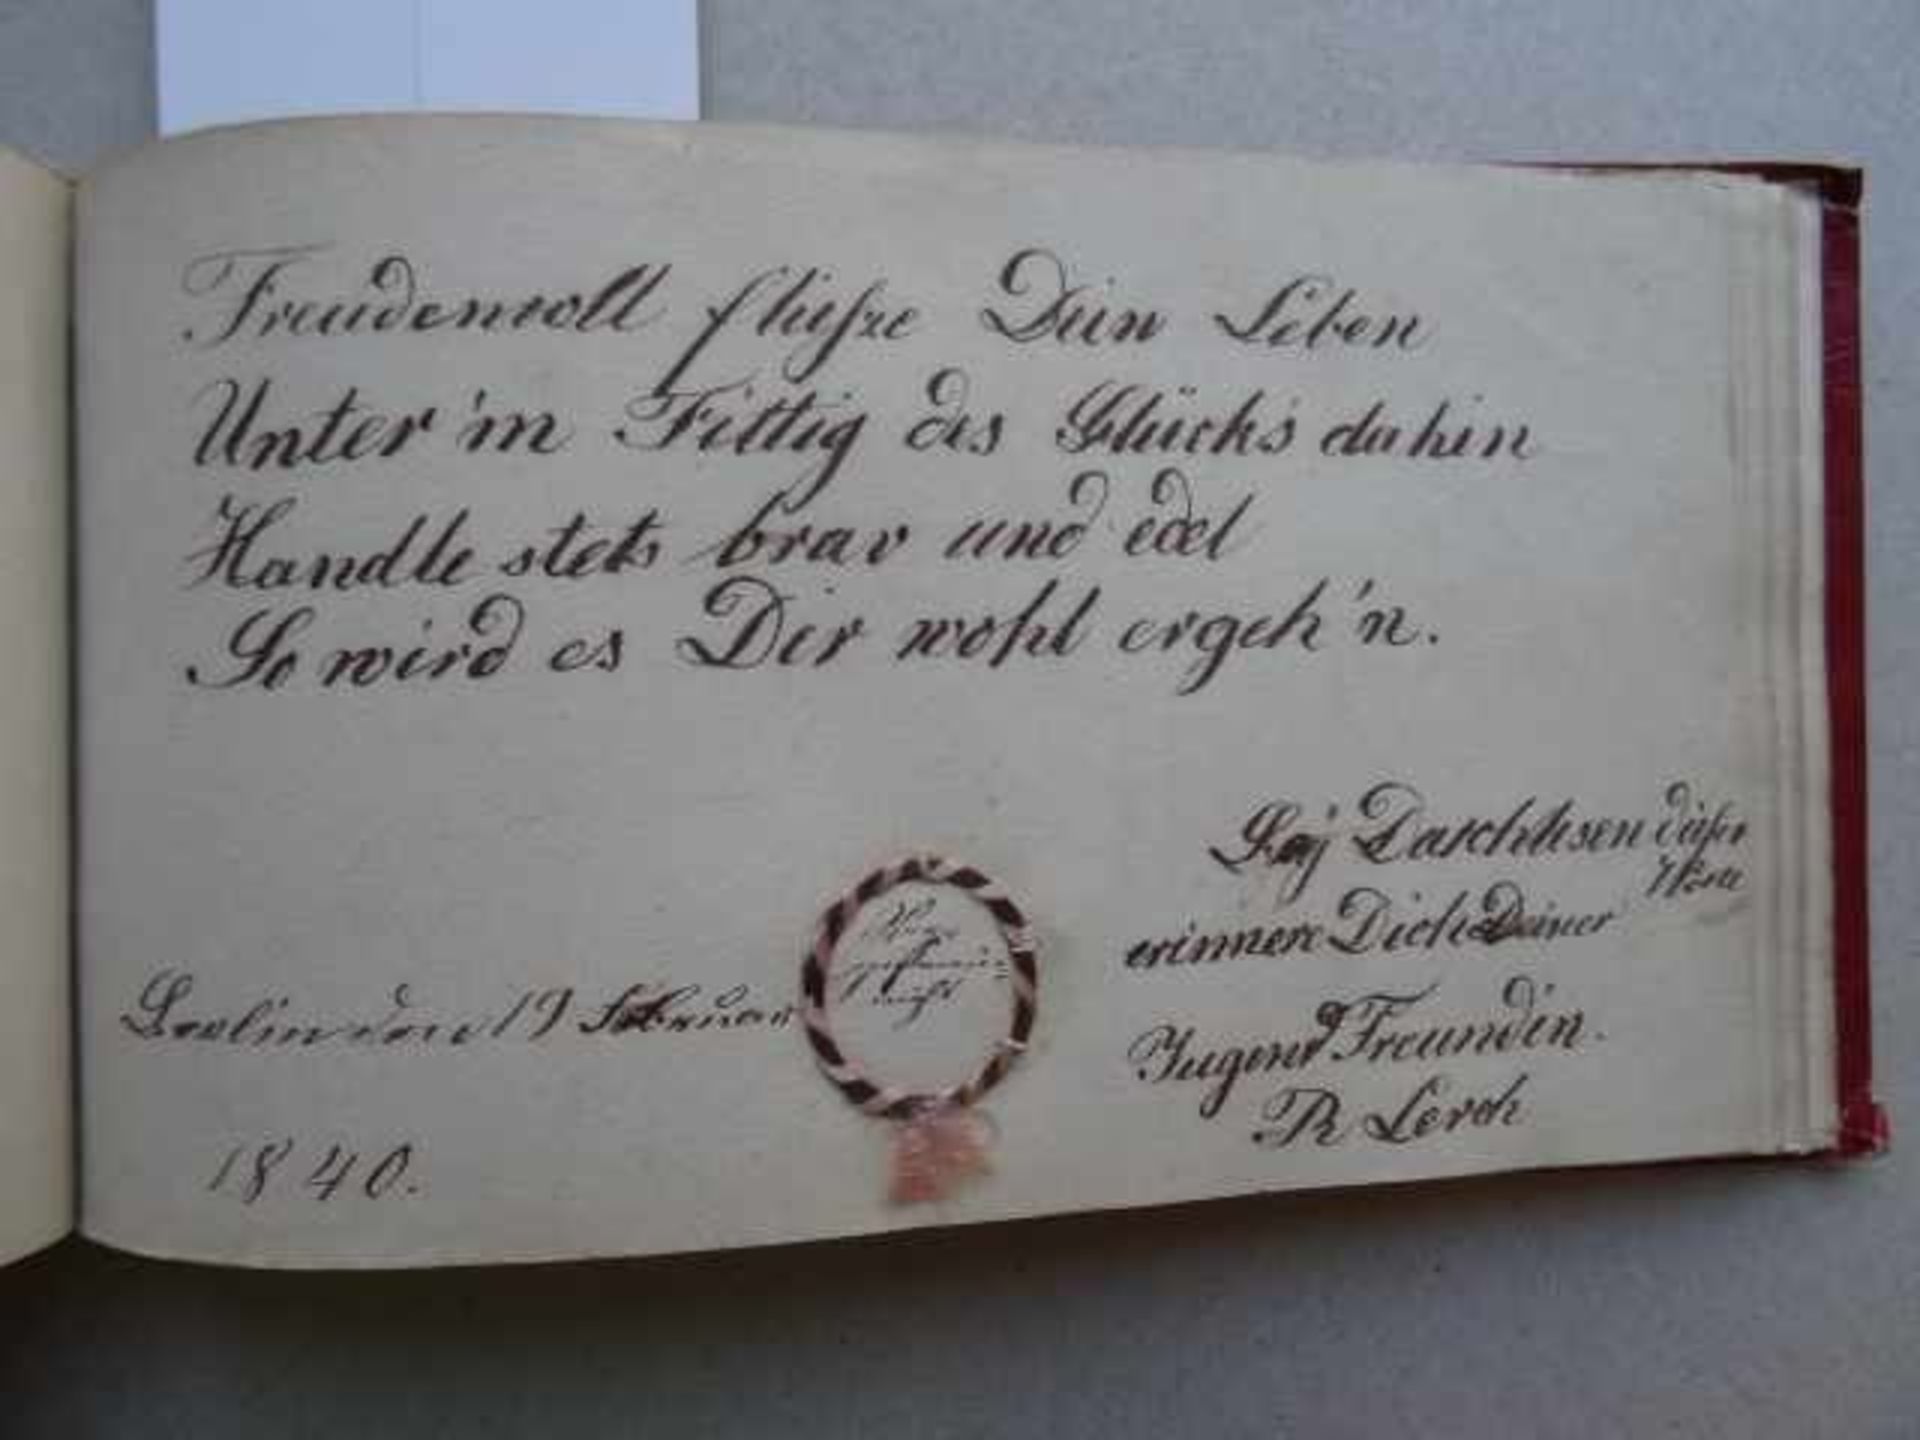 Freudenvoll fließe Dein Leben
Unter'm Fittig des Glück's dahin
Handle stets brav und edel
So wird es Dir wohl ergeh'n.
Durchlesen dieser
erinnere Dich Deiner
Jugend Freundin.
R Lerch
Berlin den 19 Februar
1840.
nicht